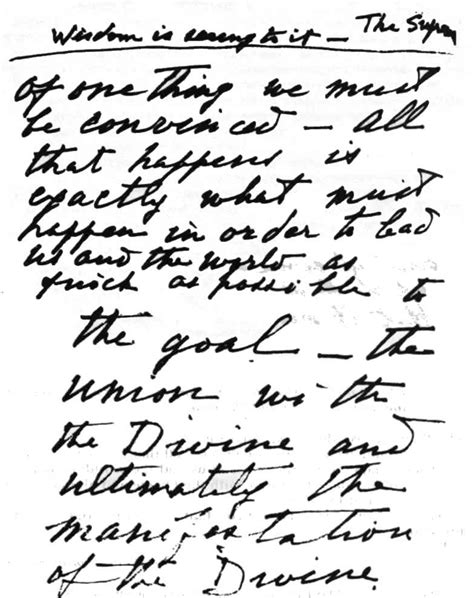 Wisdom is seeing to it — The Suprem
Of one thing we must
be convinced — all
that happens is
exactly what must
happen in order to lead
us and the world as
quick as possible to
the goal — the
union with
the Divine and
ultimately the
manifestation
of the Divine.